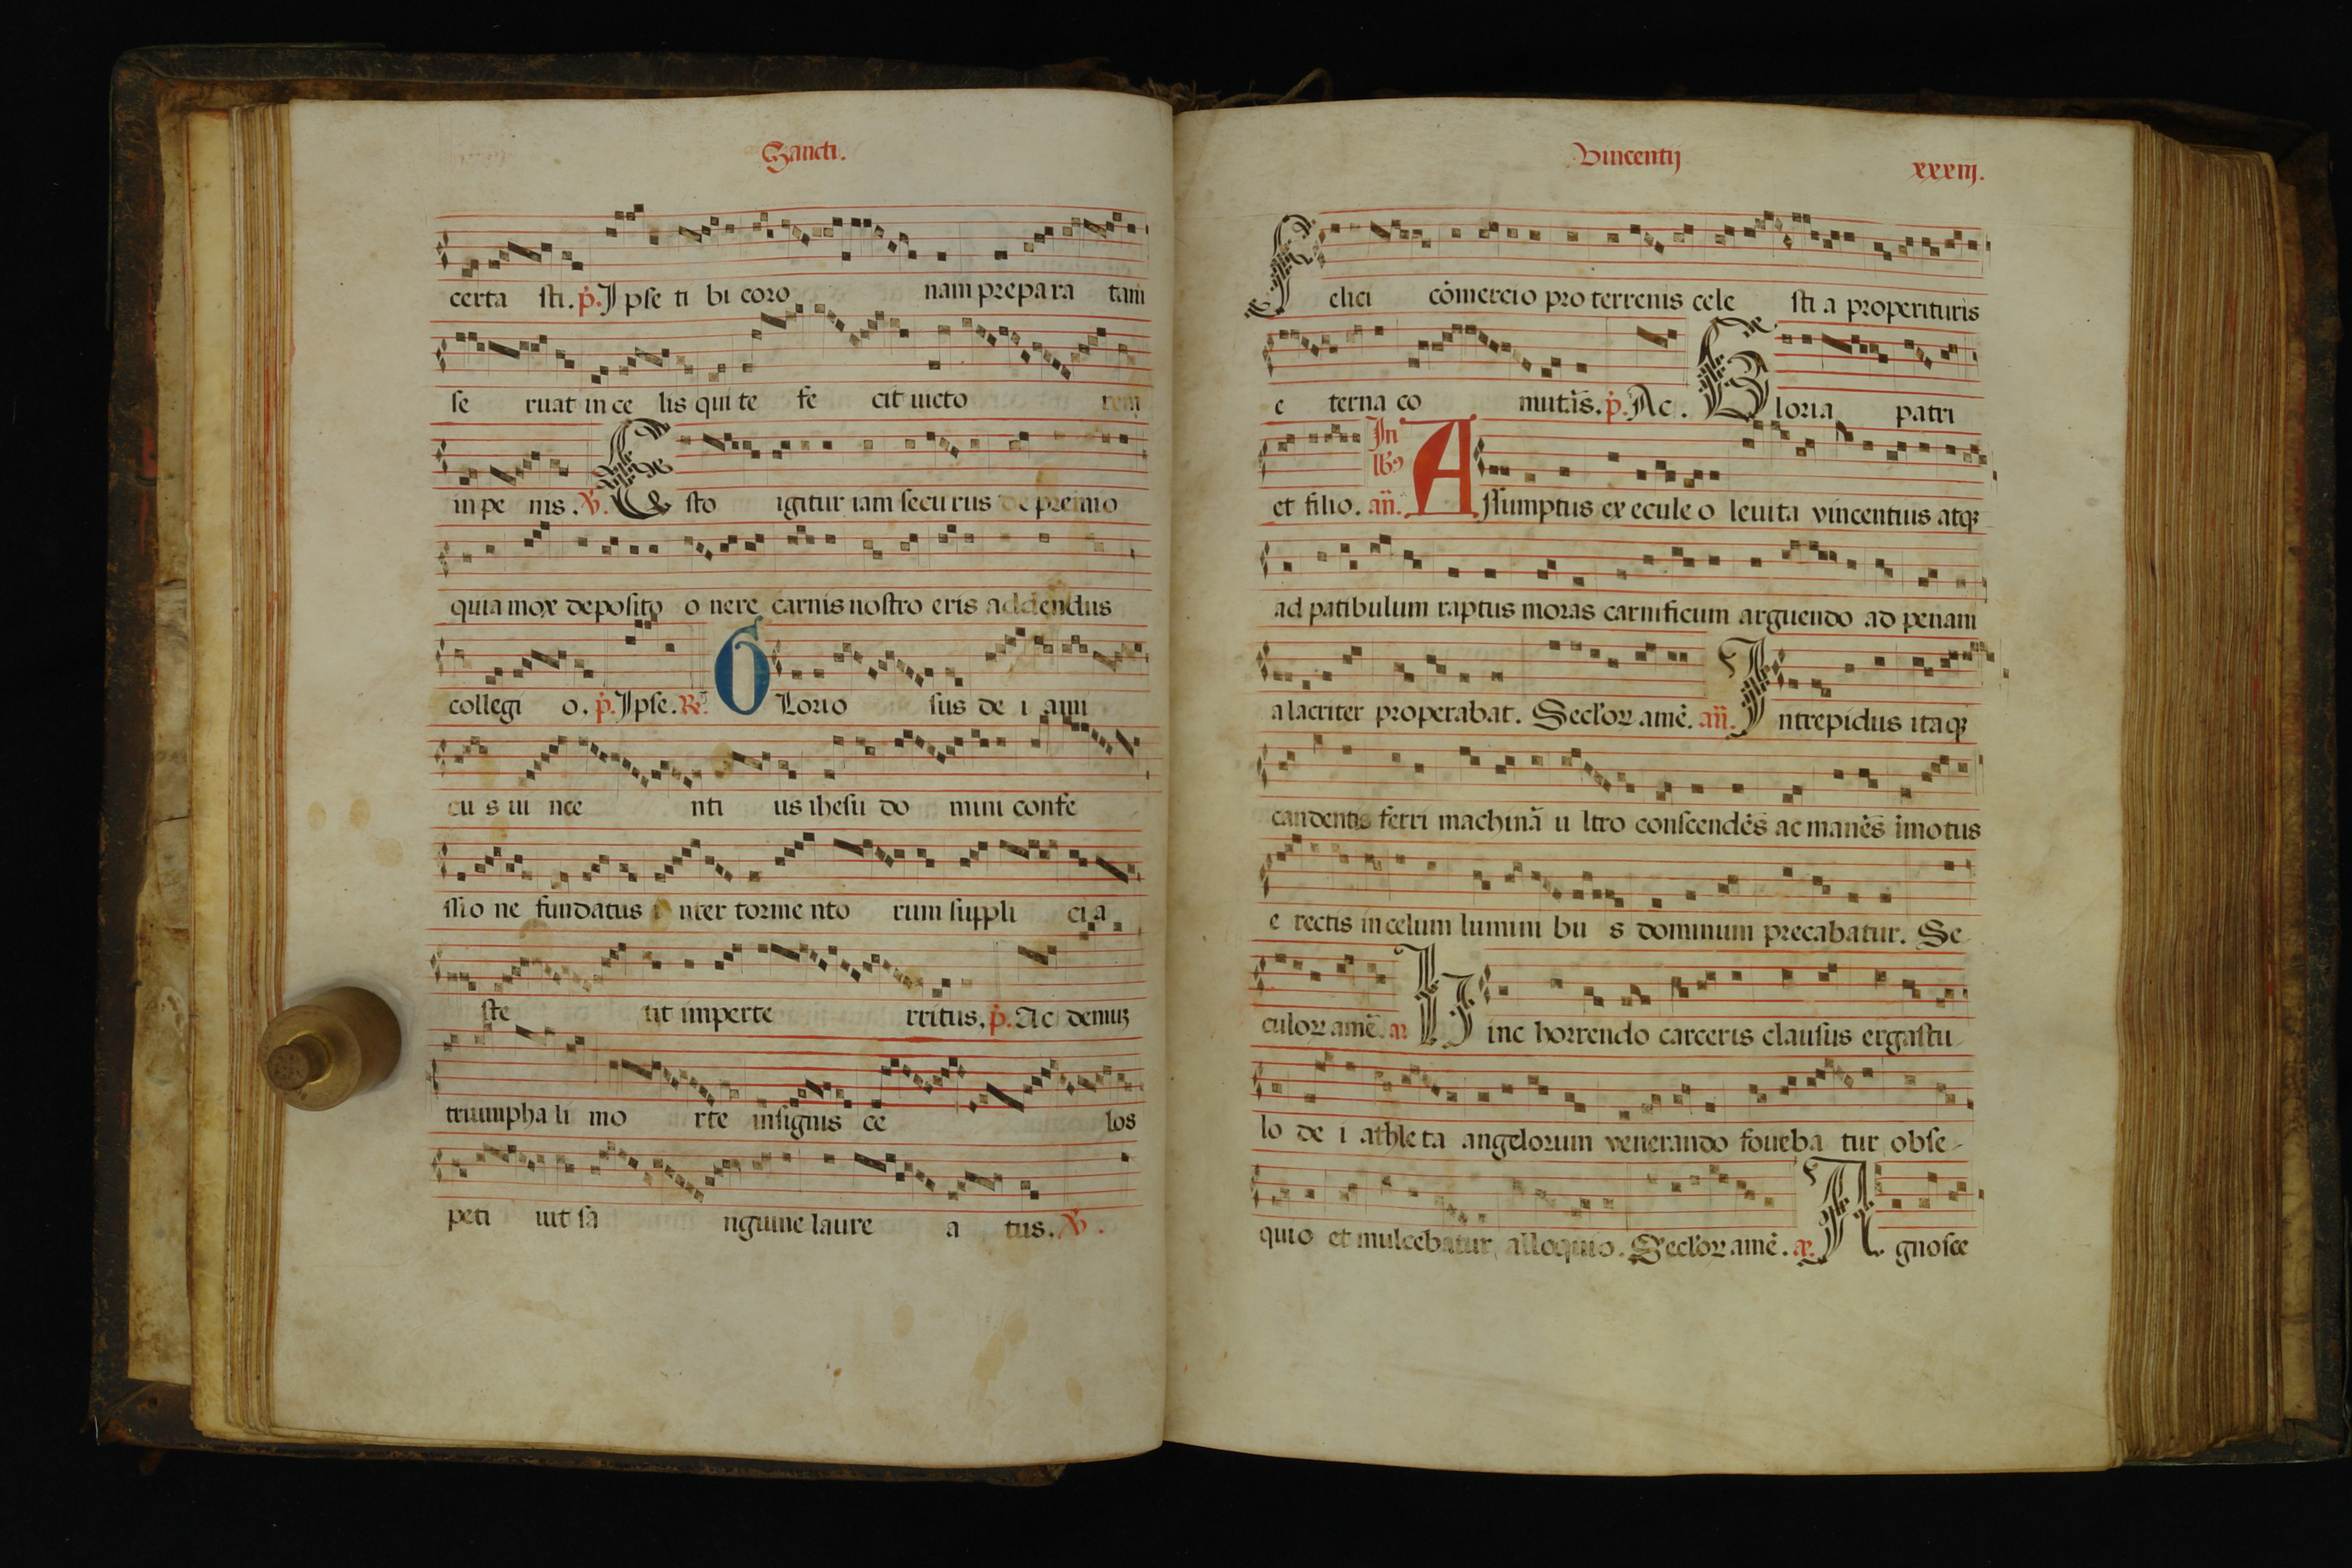 Sancti.
certa sti. p. Ipse ti bi coro nam prepara tam
se ruat in ce lis qui te fe cit uicto rem
in pe nis. V. E sto igitur iam securus de premio
quia mox deposito o nere carnis nostro eris addendus
collegi o. p. Ipse. R. G Lorio sus de i ami
cu s ui nce nti us ihesu do mini confe
ssio ne fundatus i nter torme nto rum suppli ci a
ste tit imperte rritus. p. Ac demuz
triumpha li mo rte insignis ce los
peti iut sa nguine laure a tus. V.
Vincentij xxxiij.
F elici cōmercio pro terrenis cele sti a properituris
e terna co mutās. p. Ac. G loria patri
et filio. In lb9 an̄. A ssumptus ex ecule o leuita vincentius atqȝ
ad patibulum raptus moras carnificum arguendo ad penam
alacriter properabat. Secl'oꝝ amē. an̄. I ntrepidus itaqȝ
candentis ferri machinā u ltro conscendēs ac manēs īmotus
e rectis in celum lumini bu s dominum precabatur. Se
culoꝝ amē. a. H inc horrendo carceris clausus ergastu-
lo de i athleta angelorum venerando foueba tur obse-
quio et mulcebatur alloquio. Secl'oꝝ amē. a. A gnosce